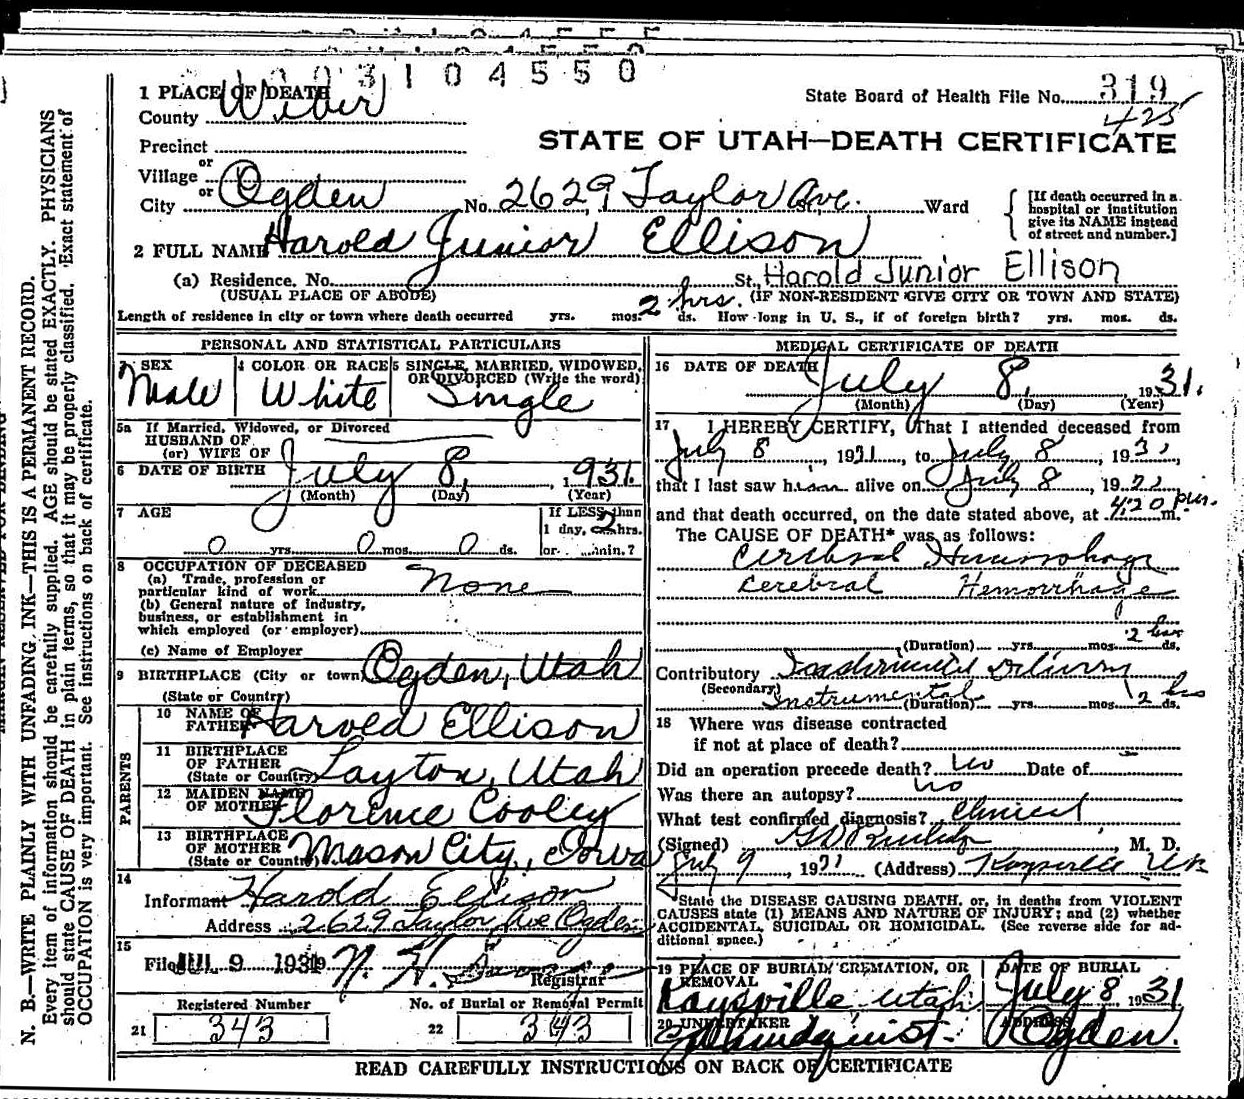 003104550
1 PLACE OF DEATH
County Weber
State Board of Health File No. 319
425
STATE OF UTAH—DEATH CERTIFICATE
Precinct
or
Village
or
City Ogden No. 2629 Taylor Ave. Ward
[If death occurred in a hospital or institution give its NAME instead of street and number.]
2 FULL NAME Harold Junior Ellison
(a) Residence. No. St., Harold Junior Ellison
(USUAL PLACE OF ABODE) (IF NON-RESIDENT GIVE CITY OR TOWN AND STATE)
Length of residence in city or town where death occurred yrs. mos. 2 hrs. ds. How long in U. S., if of foreign birth? yrs. mos. ds.
PERSONAL AND STATISTICAL PARTICULARS
3 SEX Male
4 COLOR OR RACE White
5 SINGLE, MARRIED, WIDOWED, OR DIVORCED (Write the word) Single
5a If Married, Widowed, or Divorced
HUSBAND OF
(or) WIFE OF
6 DATE OF BIRTH July 8, 1931.
(Month) (Day) (Year)
7 AGE
0 yrs. 0 mos. 0 ds.
If LESS than
1 day, 2 hrs.
or min.?
8 OCCUPATION OF DECEASED
(a) Trade, profession or
particular kind of work None
(b) General nature of industry,
business, or establishment in
which employed (or employer)
(c) Name of Employer
9 BIRTHPLACE (City or town) Ogden, Utah
(State or Country)
PARENTS
10 NAME OF FATHER Harold Ellison
11 BIRTHPLACE OF FATHER (State or Country) Layton, Utah
12 MAIDEN NAME OF MOTHER Florence Cooley
13 BIRTHPLACE OF MOTHER (State or Country) Mason City, Iowa
14
Informant Harold Ellison
Address 2629 Taylor Ave Ogden
15
Filed JUL 9 1931 Registrar
Registered Number
21 343
No. of Burial or Removal Permit
22 343
MEDICAL CERTIFICATE OF DEATH
16 DATE OF DEATH July 8, 1931.
(Month) (Day) (Year)
17 I HEREBY CERTIFY, That I attended deceased from
July 8, 1931, to July 8, 1931,
that I last saw him alive on July 8, 1931
and that death occurred, on the date stated above, at 4:20 pm. m.
The CAUSE OF DEATH* was as follows:
Cerebral Hemorrhage
Cerebral Hemorrhage
(Duration) yrs. mos. 2 hrs ds.
Contributory Instrumental Delivery
(Secondary) Instrumental (Duration) yrs. mos. 2 hrs ds.
18 Where was disease contracted
if not at place of death?
Did an operation precede death? no Date of
Was there an autopsy? no
What test confirmed diagnosis? Clinical
(Signed) , M. D.
July 9, 1931 (Address) Kaysville Ut
*State the DISEASE CAUSING DEATH, or, in deaths from VIOLENT
CAUSES state (1) MEANS AND NATURE OF INJURY; and (2) whether
ACCIDENTAL, SUICIDAL OR HOMICIDAL. (See reverse side for ad-
ditional space.)
19 PLACE OF BURIAL, CREMATION, OR REMOVAL
Kaysville Utah
DATE OF BURIAL
July 8 1931
20 UNDERTAKER
Lindquist
ADDRESS
Ogden.
READ CAREFULLY INSTRUCTIONS ON BACK OF CERTIFICATE
N. B.—WRITE PLAINLY WITH UNFADING INK—THIS IS A PERMANENT RECORD.
Every item of information should be carefully supplied. AGE should be stated EXACTLY. PHYSICIANS
should state CAUSE OF DEATH in plain terms, so that it may be properly classified. Exact statement of
OCCUPATION is very important. See instructions on back of certificate.